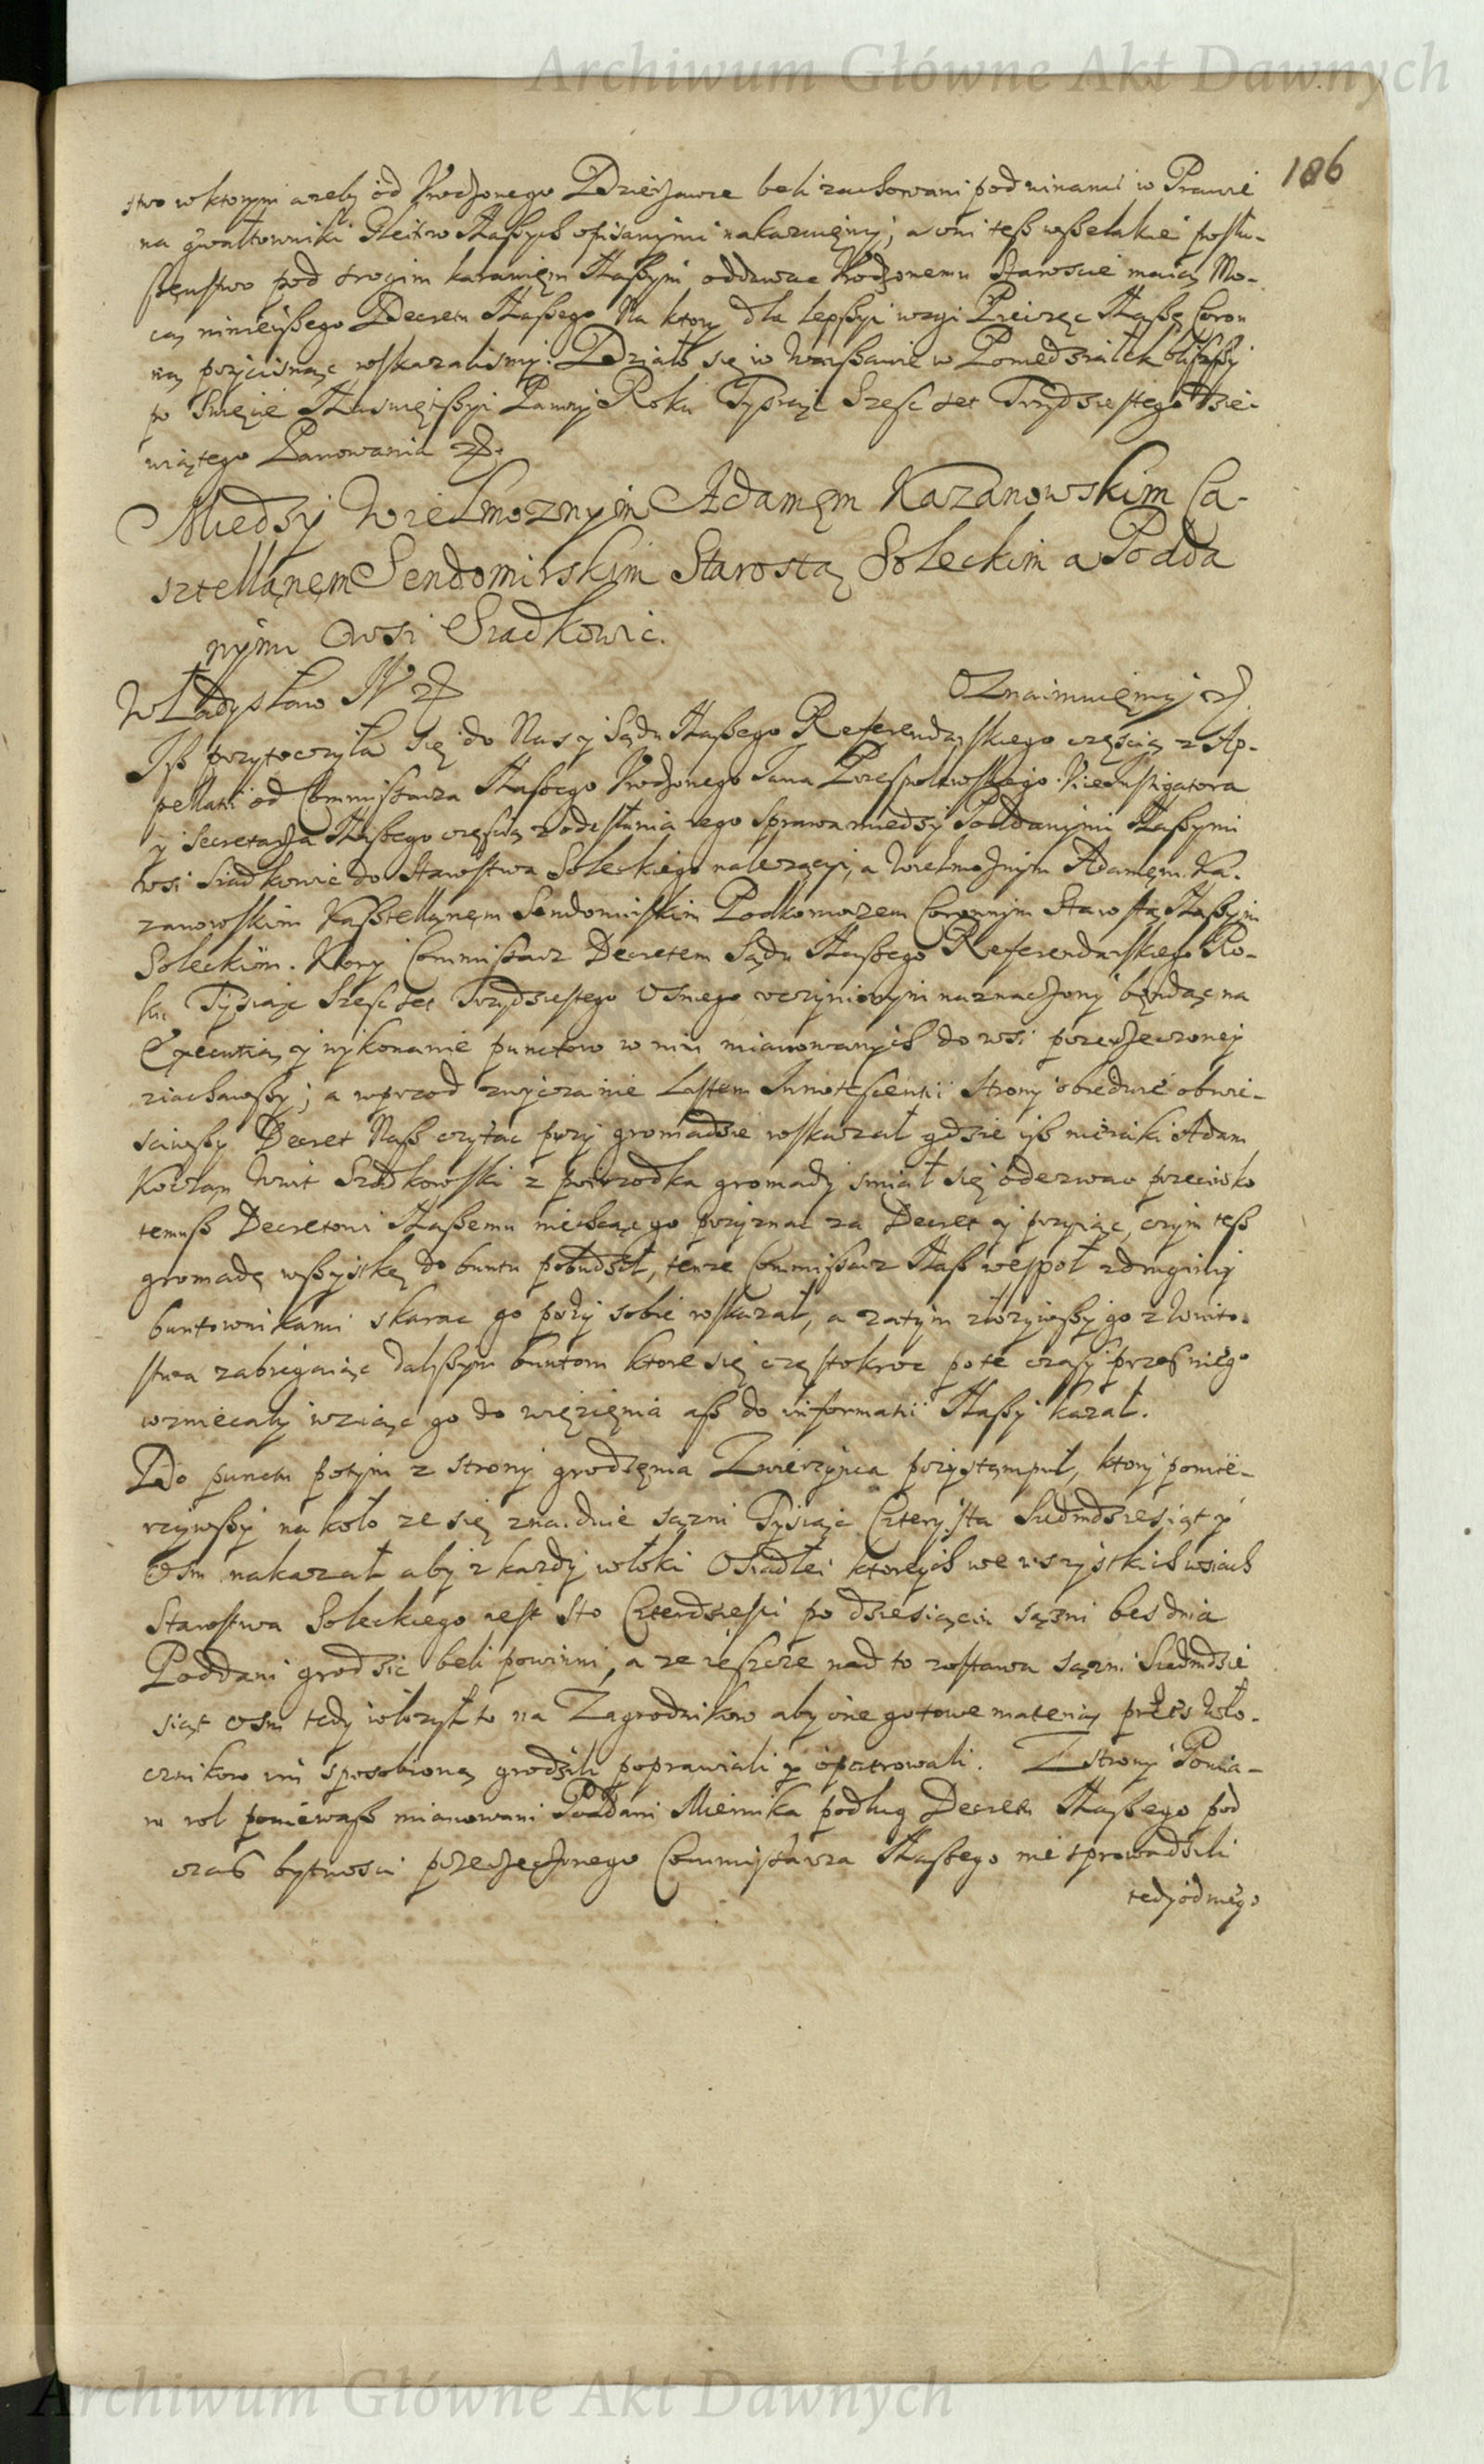 Archiwum Główne Akt Dawnych
186
stwo w ktorym azeby od Urodzonego Dzierzawce beli zachowani pod winami w Prawie
na gwałtowniki Gleitow Naszych opisanymi nakazuięmy; a oni tesz wszelakie posłu-
szęnstwo pod srogim karanięm Naszym oddawac Urodzonemu Staroscie maią Mo-
cą ninieiszego Decretu Naszego Na ktory dla lepszyi wagi Pieizęc Naszę Coron
ną przycisnąc roskazalismy. Działo się w Warszawie w Poniedziałek blisszy
po Swięcie Naswiętszyi Panny Roku Tysiąc Szesc set Trzydziestego Dzie-
wiątego Panowania
Miedzy Wielmoznym Adamęm Kazanowskim Ca-
sztellanęm Sendomirskim Starostą Soleckim a Podda
nymi Wsi Siadkowic.
Władysław IV
Oznaimuięmy
Isz przytoczyła się do Nas y Sądu Naszego Referendarskiego częscią z Ap-
pellatii od Commissarza Naszego Urodzonego Jana Przespolewskiego Viceinstigatora
y Secretarza Naszego częscią z odesłania iego Sprawa miedzy Poddanymi Naszymi
wsi Siadkowic do Starostwa Soleckiego nalezącyi, a Wielmoznym Adamęm Ka-
zanowskim Kasztellanęm Sendomirskim Podkomorzem Coronnym Starostą Naszym
Soleckim. Ktory Commissarz Decretem Sądu Naszego Referendarskiego Ro-
ku Tysiąc Szesc set Trzydziestego Osmego uczynionym naznaczony będąc na
Executią y wykonanie punctow w nim mianowanych do wsi przerzeczonej
ziachawszy; a wprzod zwyczainie Listem Innotescentii Strony obiedwie obwie-
sciwszy Decret Nasz czytac przy gromadzie roskazał gdzie isz nieiaki Adam
Koczan Woit Siadkowski z posrzodka gromady smiał się oderwac przeciwko
temusz Decretowi Naszemu niechcąc go przyznac za Decret y przyiąc, czym tesz
gromadę wszystkę do buntu pobudził, tenze Commissarz Nasz wespoł z drugimi
buntownikami skarac go przy sobie roskazał, a zatym złozywszy go z Woito-
stwa zabiegaiąc dalszym buntom ktore się częstokroc po te czasy przesz niego
wzniecały wziąc go do więzięnia asz do informatii Naszy kazał.
Do punctu potym z strony grodzęnia Zwierzynca przystąmpuł, ktory pomie-
rzywszy na koło ze się znaidnie sązni Tysiąc Czterysta Siedmdziesiąt y
Osm nakazał aby z kazdy włoki Osiadłei ktorych we wszystkich wsiach
Starostwa Soleckiego iest Sto Czterdziesci po dziesiąciu sązni bes dnia
Poddani grodzic beli powinni, a ze ieszcze nad to zostawa sązni Siedmdzie
siąt osm tedy włozył to na Zagrodnikow aby one gotowe materią przes Wło-
cznikow im sposobioną grodzili poprawiali y opatrowali. Z strony Pomia-
ru rol poniewasz mianowani Poddani Miernika podług Decretu Naszego pod
czas bytnosci przerzeczonego Commissarza Naszego nie sprowadzili
tedy od niego
Archiwum Główne Akt Dawnych